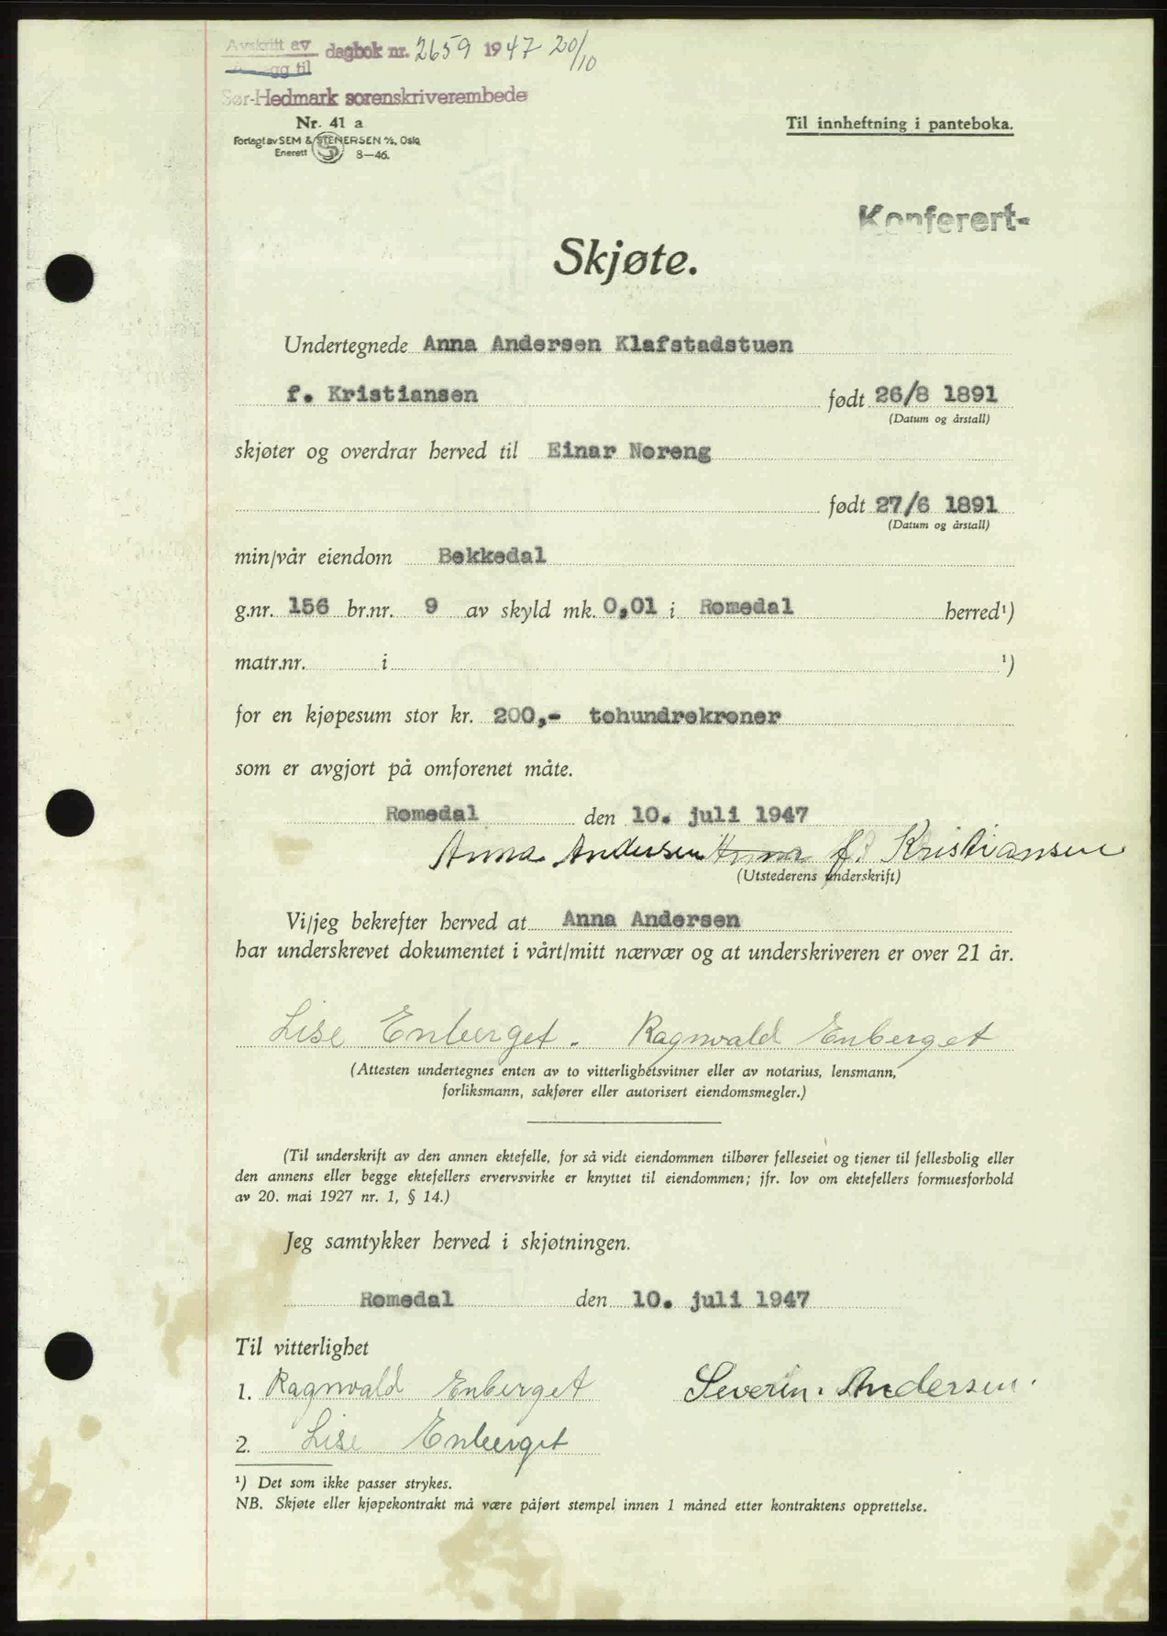 Avskritt av dagbok nr. 2659 1947 20/10
gg til
Sør-Hedmark sorenskriverembede
Nr. 41 a
Til innheftning i panteboka.
Forlagt av SEM & STENERSEN A/S, Oslo
Enerett 8—46.
Konferert-
Skjøte.
Undertegnede Anna Andersen Klafstadstuen
f. Kristiansen født 26/8 1891
(Datum og årstall)
skjøter og overdrar herved til Einar Noreng
født 27/6 1891
(Datum og årstall)
min/vår eiendom Bekkedal
g.nr. 156 br.nr. 9 av skyld mk. 0,01 i Romedal herred¹)
matr.nr. i ¹)
for en kjøpesum stor kr. 200,- tohundrekroner
som er avgjort på omforenet måte.
Romedal den 10. juli 1947
Anna Andersen Anna f. Kristiansen
(Utstederens underskrift)
Vi/jeg bekrefter herved at Anna Andersen
har underskrevet dokumentet i vårt/mitt nærvær og at underskriveren er over 21 år.
Lise Enberget. Ragnvald Enberget
(Attesten undertegnes enten av to vitterlighetsvitner eller av notarius, lensmann,
forliksmann, sakfører eller autorisert eiendomsmegler.)
(Til underskrift av den annen ektefelle, for så vidt eiendommen tilhører felleseiet og tjener til fellesbolig eller
den annens eller begge ektefellers ervervsvirke er knyttet til eiendommen; jfr. lov om ektefellers formuesforhold
av 20. mai 1927 nr. 1, § 14.)
Jeg samtykker herved i skjøtningen.
Romedal den 10. juli 1947
Til vitterlighet
1. Ragnvald Enberget Severin. Andersen.
2. Lise Enberget
¹) Det som ikke passer strykes.
NB. Skjøte eller kjøpekontrakt må være påført stempel innen 1 måned etter kontraktens opprettelse.